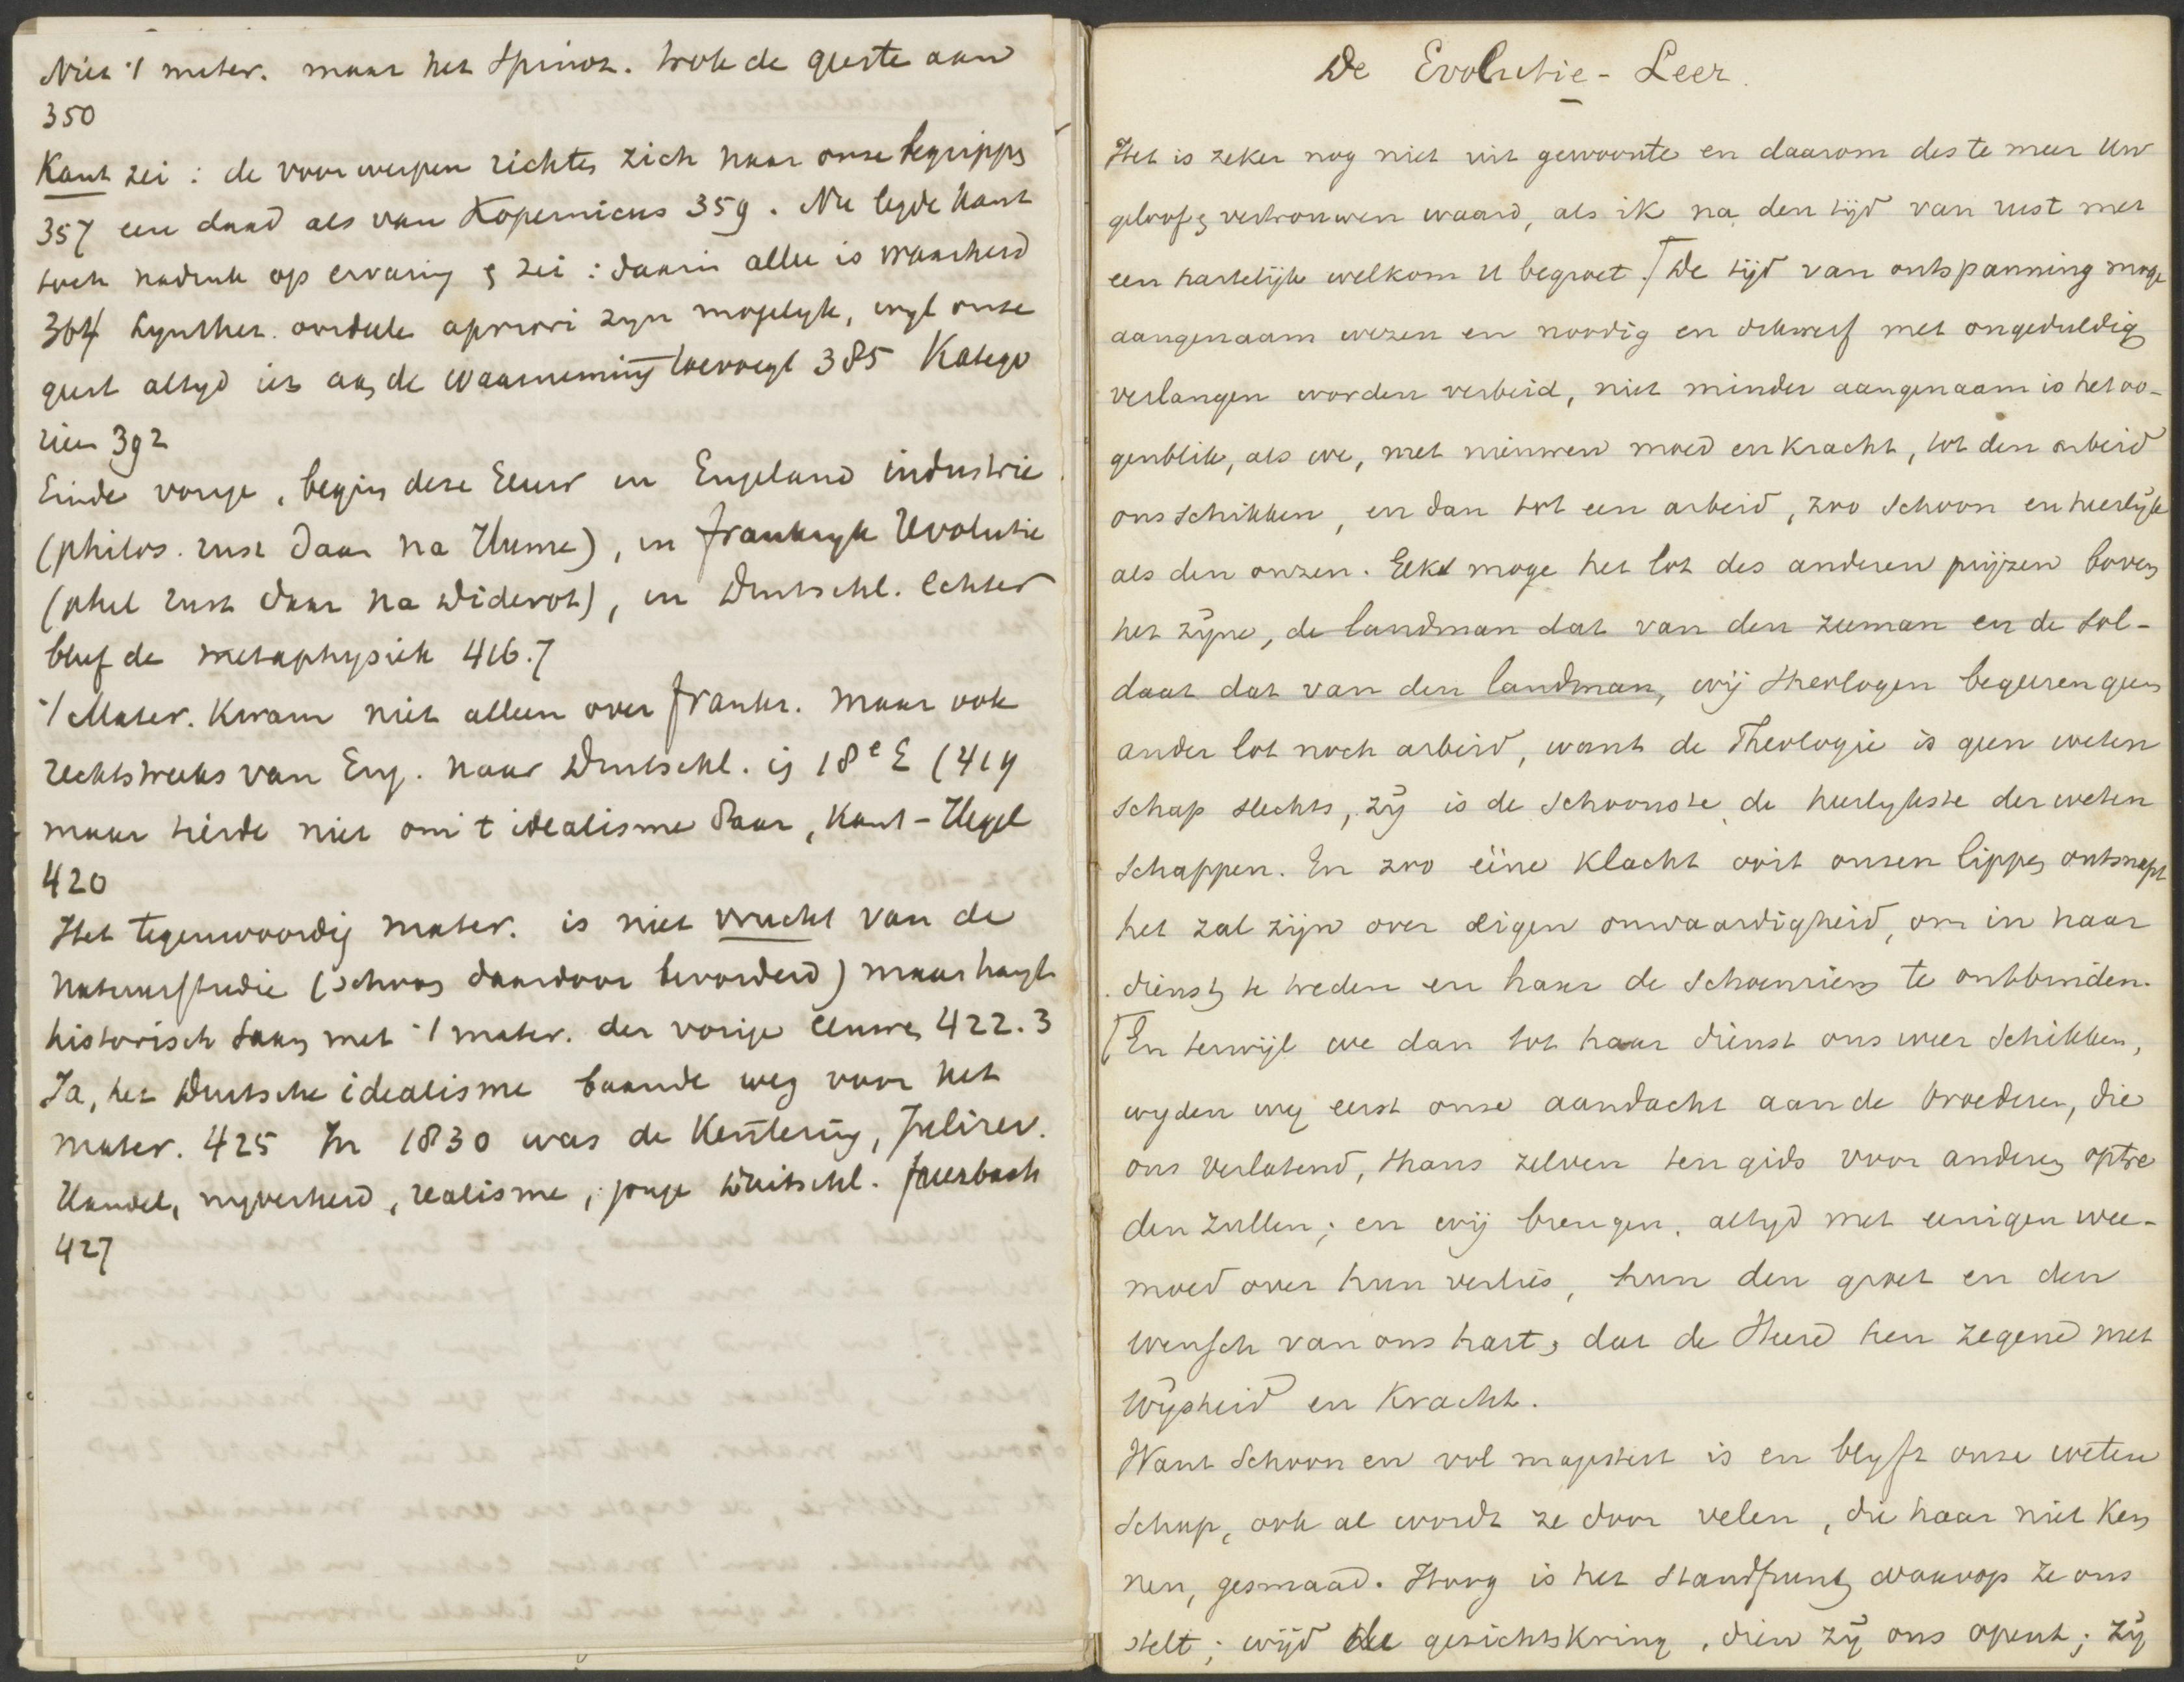 Niet 't mater. maar het Spinoz. trok de geeste aan
350
Kant zei: de voorwerpen richten zich naar onze begrippen
357 een daad als van Kopernicus 359. Nu legde Kant
toch nadruk op ervaring & zei: daarin allee is waarheid
364 Synthet. oordeele apriori zyn mogelyk, wyl onze
geest altyd iets aan de waarneming toevoegt 385 Katego
rien 392
Einde vorige, begin deze Eeuw in Engeland industrie
(philos. rust daar na Hume), in frankryk Revolutie
(phil rust daar na Diderot), in Duitschl. echter
bleef de metaphysiek 416.7
't Mater. kwam niet alleen over frankr. maar ook
rechtstreeks van Eng. naar Duitschl. in 18e E (419
maar tierde niet om 't idealisme daar, Kant-Hegel
420
Het tegenwoordig mater. is niet vrucht van de
Natuurstudie (schoon daardoor bevorderd) maar hangt
historisch saam met 't mater. der vorige eeuwen 422.3
Ja, het Duitsche idealisme baande weg voor het
mater. 425 In 1830 was de Kentering, Julirev.
Handel, nyverheid, realisme, jonge Duitschl. feuerbach
427
De Evolutie-Leer.
Het is zeker nog niet uit gewoonte en daarom des te meer Uw
geloof & vertrouwen waard, als ik na den tijd van rust met
een hartelijk welkom U begroet. De tijd van ontspanning moge
aangenaam wezen en noodig en dikwerf met ongeduldig
verlangen worden verbeid, niet minder aangenaam is het oo-
genblik, als we, met nieuwen moed en kracht, tot den arbeid
ons schikken, en dan tot een arbeid, zoo schoon en heerlijk
als den onzen. Elk moge het lot des anderen prijzen boven
het zijne, de landman dat van den zeeman en de sol-
daat dat van den landman, wij Theologen begeeren geen
ander lot noch arbeid, want de Theologie is geen weten
schap slechts, zij is de schoonste, de heerlykste der weten
schappen. En zoo ééne klacht ooit onzen lippen ontsnapt
het zal zijn over eigen onwaardigheid, om in haar
dienst te treden en haar de schoenriem te ontbinden.
En terwijl we dan tot haar dienst ons weer schikken,
wyden wy eerst onze aandacht aan de broederen, die
ons verlatend, thans zelven ten gids voor anderen optre
den zullen; en wij brengen, altyd met eenigen wee-
moed over hun verlies, hun den groet en den
wensch van ons hart, dat de Heere hen zegene met
Wijsheid en Kracht.
Want schoon en vol majesteit is en blyft onze weten
schap, ook al wordt ze door velen, die haar niet ken
nen, gesmaad. Hoog is het standpunt waarop ze ons
stelt; wijd de gezichtskring, dien zij ons opent; zij